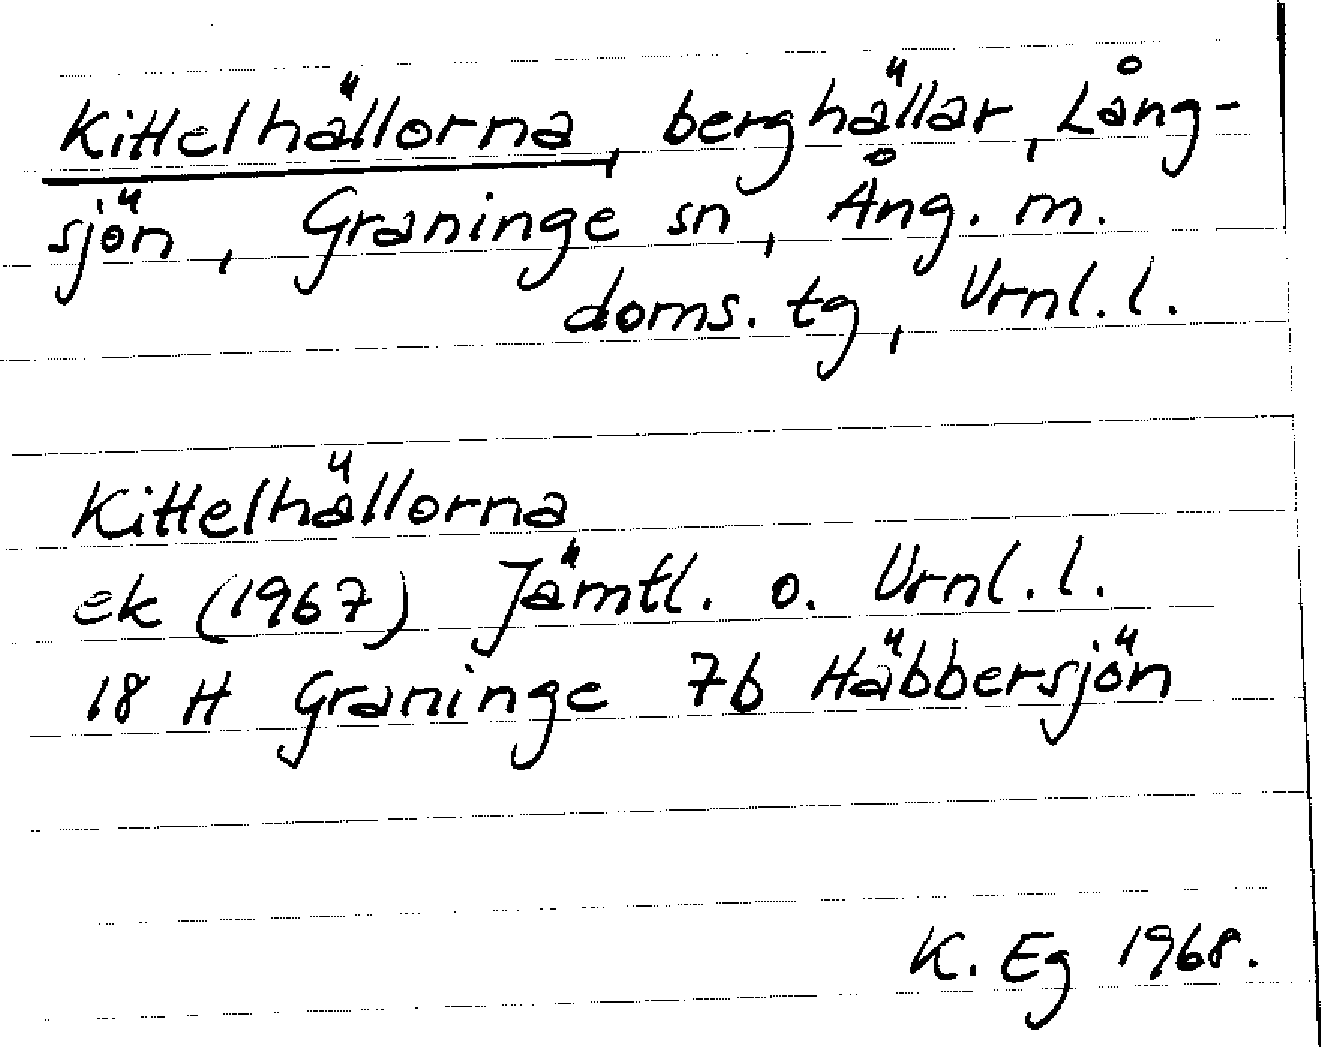 Kittelhällorna, berghällar, Lång-
sjön, Graninge sn, Ång. m.
doms. tg, Vrnl. l.
Kittelhällorna
ek (1967) Jämtl. o. Vrnl. l.
18 H Graninge 7b Häbbersjön
K. Eg 1968.